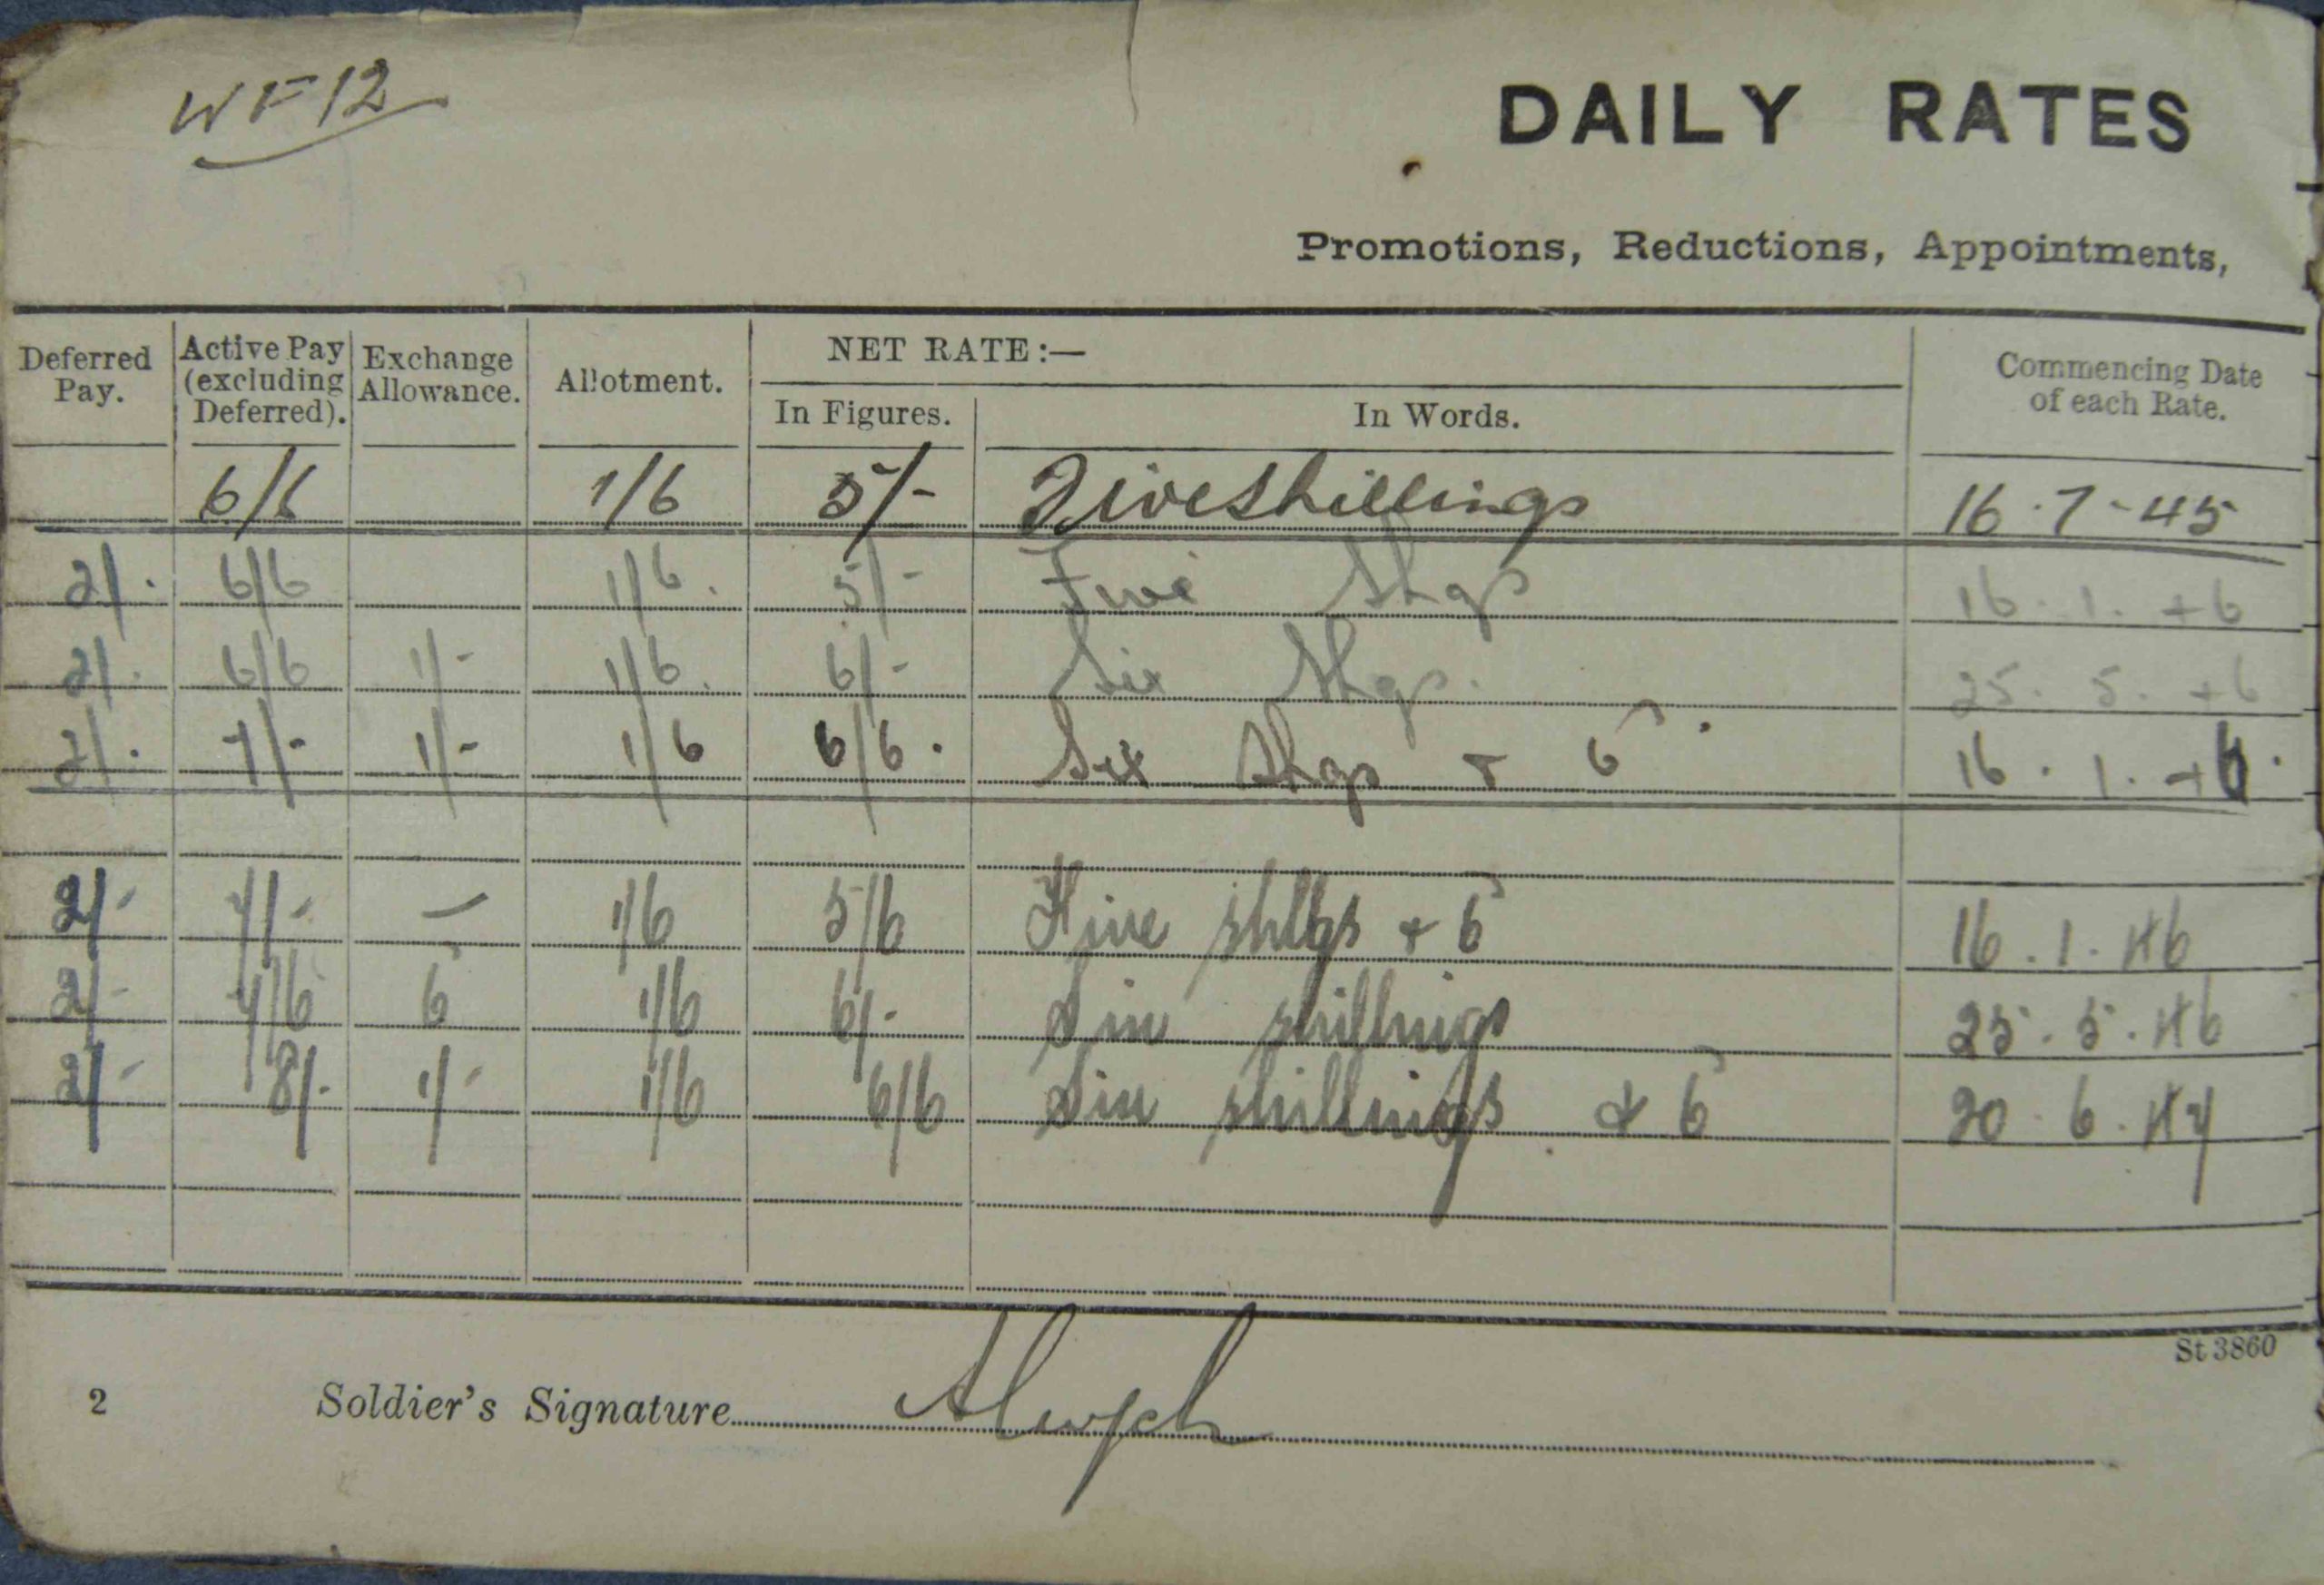 WF12
DAILY RATES
Promotions, Reductions, Appointments,
Deferred Pay. Active Pay (excluding Deferred). Exchange Allowance. Allotment. NET RATE:— In Figures. In Words. Commencing Date of each Rate.
6/6 1/6 5/- Five Shillings 16.7-45
2/. 6/6 1/6. 5/- Five Shgs 16.1.46
2/. 6/6 1/- 1/6. 6/- Six Shgs. 25.5.46
2/. 7/- 1/- 1/6 6/6. Six Shgs + 6. 16.1.46.
2/- 7/- — 1/6 5/6 Five shlgs + 6 16.1.46
2/- 7/6 6 1/6 6/- Six shillings 25.5.46
2/- 8/- 1/- 1/6 6/6 Six shillings & 6 20.6.47
St 3860
2 Soldier's Signature